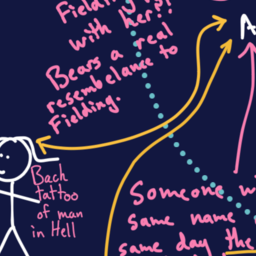 with her!
Bears a real
resembelance to
Fielding.
A
Back
tattoo
of man
in Hell
Someone
same name
same day the